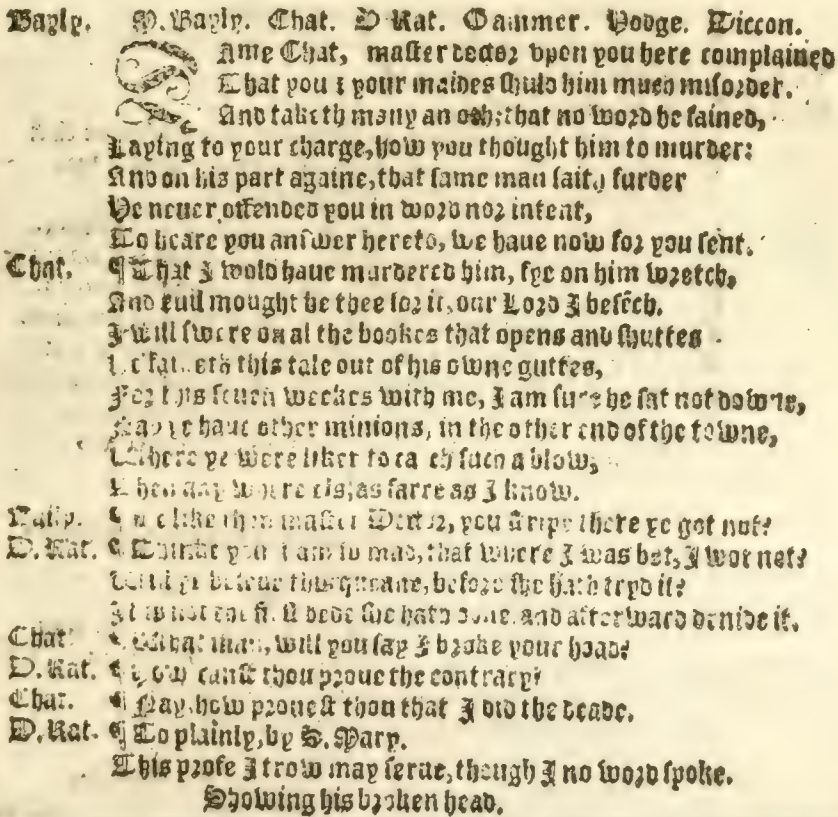 Bayly. M. Bayly. Chat. D Rat. Gammer. Hodge. Diccon.
DAme Chat, master doctor vpon you here complained
That you & your maides shuld him much misorder.
And taketh many an oth, that no word be fained,
Laying to your charge, how you thought him to murder:
And on his part againe, that same man saith furder
He neuer offended you in word nor intent,
To heare you answer hereto, we haue now for you sent.
Chat. ¶ That I wold haue murdered him, fye on him wretch,
And euil mought he thee for it, our Lord I beséch.
I will swere on al the bookes that opens and shuttes
He faineth this tale out of his owne guttes,
For this seuen weekes with me, I am sure he sat not downe,
Nay ye haue other minions, in the other end of the towne,
Where ye were liker to catch such a blow,
Then any where els, as farre as I know.
Baily. ¶ Be like then master Doctor, you stripe there ye got not?
D. Rat. ¶ Thinke you I am so mad, that where I was bet, I wot not?
Will ye beleue this queane, before she hath tryd it?
It is not the first dede she hath done, and afterward denide it.
Chat. ¶ What man, will you say I broke your head?
D. Rat. ¶ How canst thou proue the contrary?
Chat. ¶ Nay, how prouest thou that I did the deade.
D. Rat. ¶ To plainly, by S. Mary.
This profe I trow may serue, though I no word spoke.
Showing his broken head.